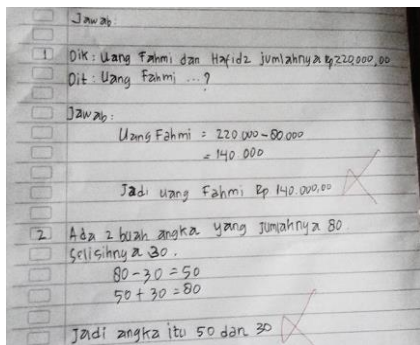 Jawab:
1 Dik: Uang Fahmi dan Hafidz jumlahnya Rp220.000,00
Dit: Uang Fahmi ...?
Jawab:
Uang Fahmi = 220 000 - 80.000
= 140 000
Jadi uang Fahmi Rp 140.000,00
2 Ada 2 buah angka yang jumlahnya 80.
Selisihnya 30.
80 - 30 = 50
50 + 30 = 80
Jadi angka itu 50 dan 30